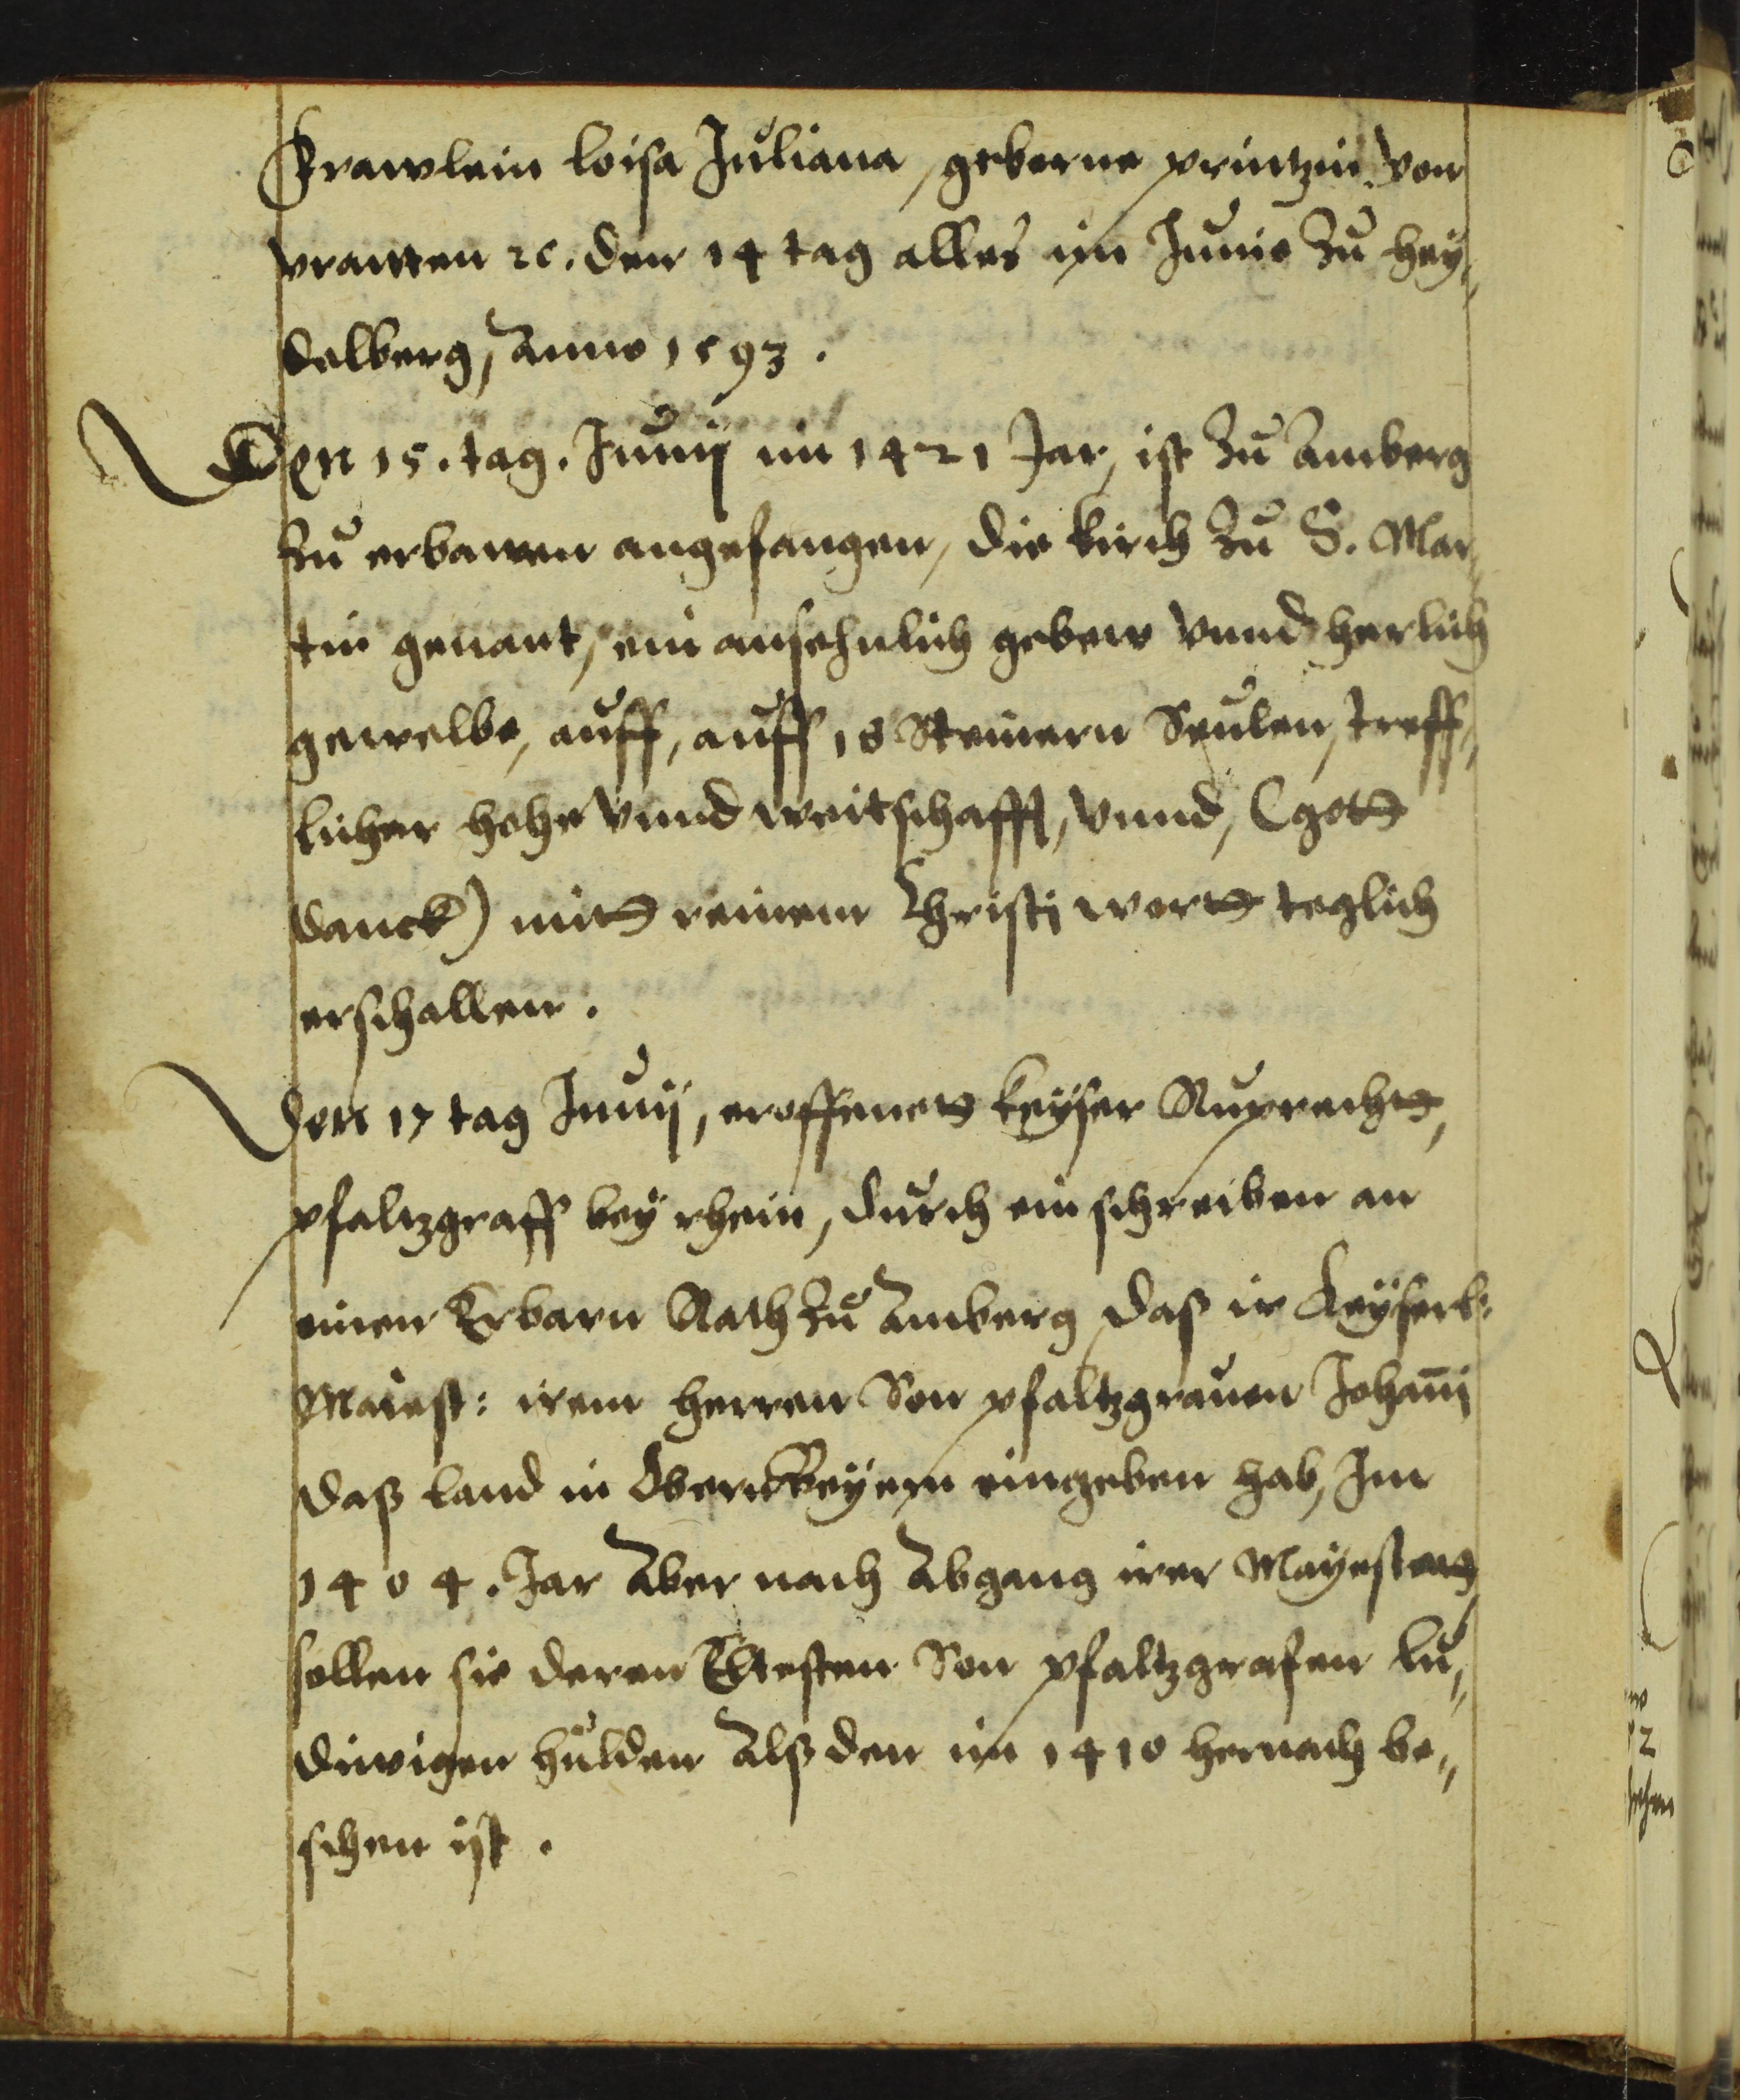 Frawlein loisa Juliana, geborne printzin von
vranien ꝛc. den 14 tag alles im Junio Zu hey„
delberg, Anno 1593.
Den 15. tag. Junij im 1421 Jar, ist Zu Amberg
Zu erbawen angefangen, die kirch Zu S. Mar„
tin genant, ein ansehnlich gebew vnnd herlich
gewelbe, auff, auff 18 Steinern Seulen, treff„
licher hohe vnnd weitschafft, vnnd, (gott
danck) mitt reinem Christi wortt teglich
erschallen.
Den 17 tag Junij, eroffenett keyser Ruprechtt,
pfaltzgraff bey rhein, durch ein schreiben an
einen Erbarn Rath zu Amberg das ir Keyserl:
Maiest: irem herren Son pfaltzgrauen Johanni
daß land in Obernbeyern eingeben hab, Im
1404. Jar Aber nach Abgang irer Mayestett
sollen sie deren Eltesten Son pfaltzgrafen Lu„
dwigen hulden Alß den im 1410 hernach be„
schen ist.